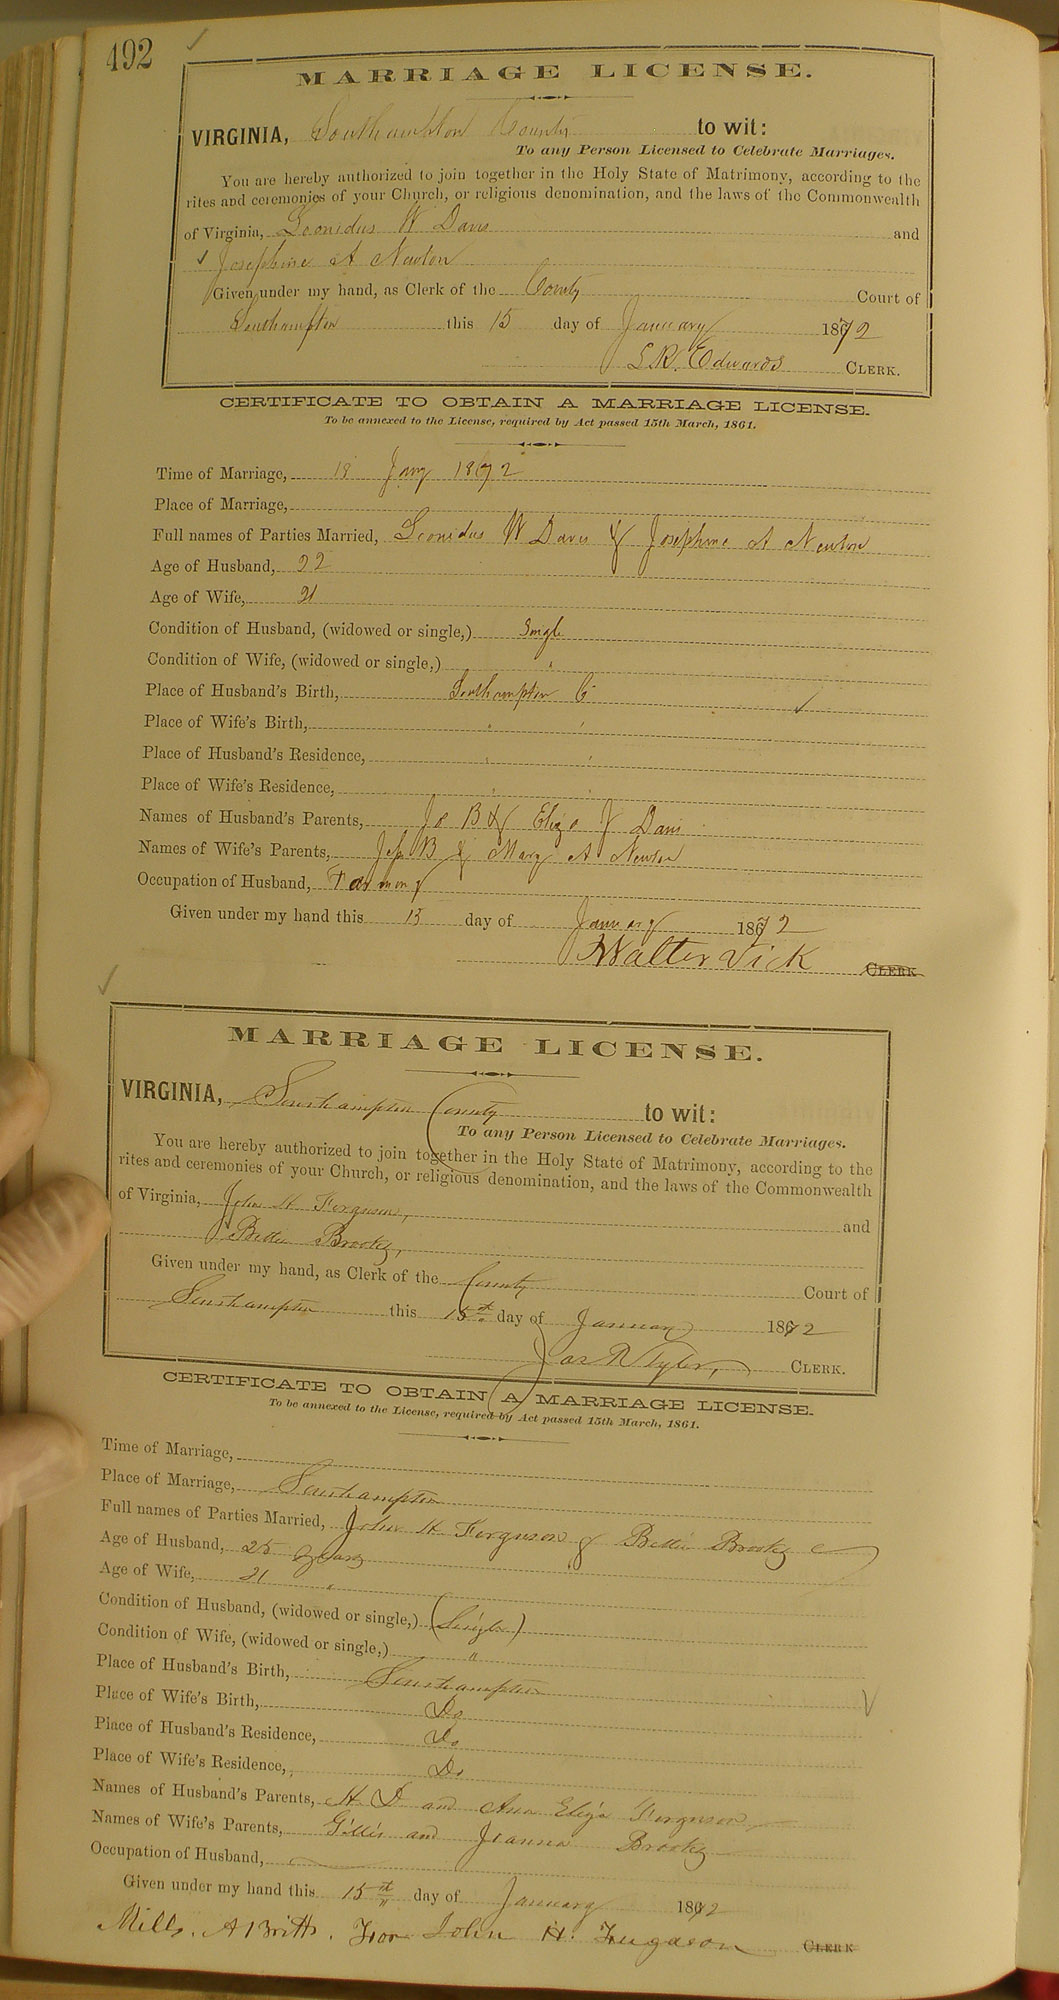 492
MARRIAGE LICENSE.
VIRGINIA, Southampton County to wit:
To any Person Licensed to Celebrate Marriages.
You are hereby authorized to join together in the Holy State of Matrimony, according to the
rites and ceremonies of your Church, or religious denomination, and the laws of the Commonwealth
of Virginia, Leonidus W Davis and
Josephine A Newton
Given under my hand, as Clerk of the County Court of
Southampton this 15 day of January 1872
L R. Edwards CLERK.
CERTIFICATE TO OBTAIN A MARRIAGE LICENSE.
To be annexed to the License, required by Act passed 15th March, 1861.
Time of Marriage, 18 Jany 1872
Place of Marriage,
Full names of Parties Married, Leonidus W Davis & Josephine A Newton
Age of Husband, 22
Age of Wife, 21
Condition of Husband, (widowed or single,) Single
Condition of Wife, (widowed or single,) "
Place of Husband's Birth, Southampton Co
Place of Wife's Birth, " "
Place of Husband's Residence, " "
Place of Wife's Residence, " "
Names of Husband's Parents, B & Eliza J Davis
Names of Wife's Parents, B & Mary A Newton
Occupation of Husband, Farming
Given under my hand this 15 day of January 1872
Walter Vick CLERK
MARRIAGE LICENSE.
VIRGINIA, Southampton County to wit:
To any Person Licensed to Celebrate Marriages.
You are hereby authorized to join together in the Holy State of Matrimony, according to the
rites and ceremonies of your Church, or religious denomination, and the laws of the Commonwealth
of Virginia, John H Ferguson, and
Bettie Brooks,
Given under my hand, as Clerk of the County Court of
Southampton this 15th day of January 1872
Jas R Tyler, CLERK.
CERTIFICATE TO OBTAIN A MARRIAGE LICENSE.
To be annexed to the License, required by Act passed 15th March, 1861.
Time of Marriage,
Place of Marriage, Southampton
Full names of Parties Married, John H Ferguson & Bettie Brooks
Age of Husband, 25 years
Age of Wife, 21 "
Condition of Husband, (widowed or single,) (Single)
Condition of Wife, (widowed or single,) "
Place of Husband's Birth, Southampton
Place of Wife's Birth, Do
Place of Husband's Residence, Do
Place of Wife's Residence, Do
Names of Husband's Parents, H. D. and Ann Eliza Ferguson
Names of Wife's Parents, Gillis and Joanna Brooks
Occupation of Husband,
Given under my hand this 15th day of January 1872
Mills. A Britt. For John H. Fugason CLERK